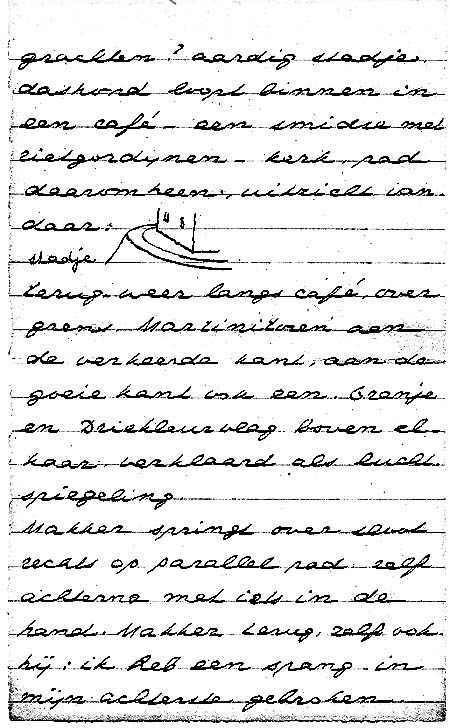 grachten? aardig stadje.
dashond loopt binnen in
een café – een smidse met
rietgordijnen – kerk, pad
daaromheen, uitzicht van
daar:
stadje
terug weer langs café, over
grens Martinitoren aan
de verkeerde kant, aan de
goeie kant ook een. Oranje
en Driekleur vlag boven el-
kaar verklaard als lucht
spiegeling
Makker springt over sloot
rechts op parallel pad. zelf
achterna met iets in de
hand. Makker terug, zelf ook.
hij: ik heb een spang in
mijn achterste gebroken